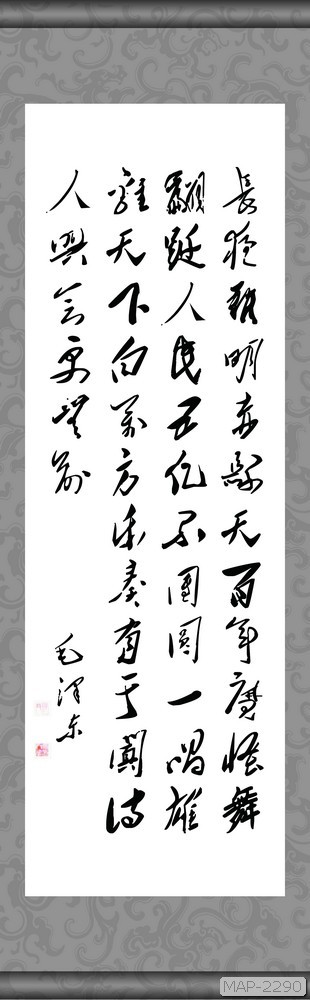 長夜難明赤縣天百年魔怪舞
翩跹人民五亿不團圓一唱雄
雞天下白萬方乐奏有于闐诗
人興会更無前
毛澤东
MAP-2290